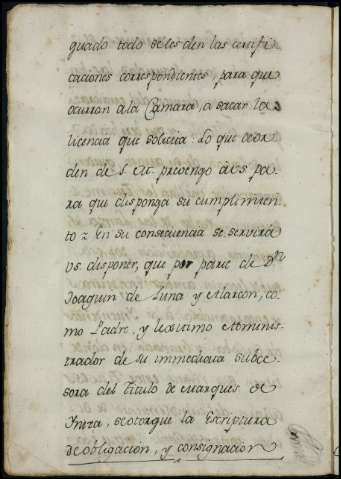 quado todo se les den las certifi
caciones correspondientes para que
ocurran a la Camara, a sacar la
licencia que solicita: Lo que de or
den de S. M. prevengo a VS pa
ra que disponga su cumplimien
to = En su consecuencia se servirá
VS. disponer, que por parte de Dn
Joaquin de Luna y Alarcon, co
mo Padre, y lexitimo Adminis-
trador de su immediata subce
sora del titulo de Marques de
se otorgue la Escriptura
de obligacion, y consignacion